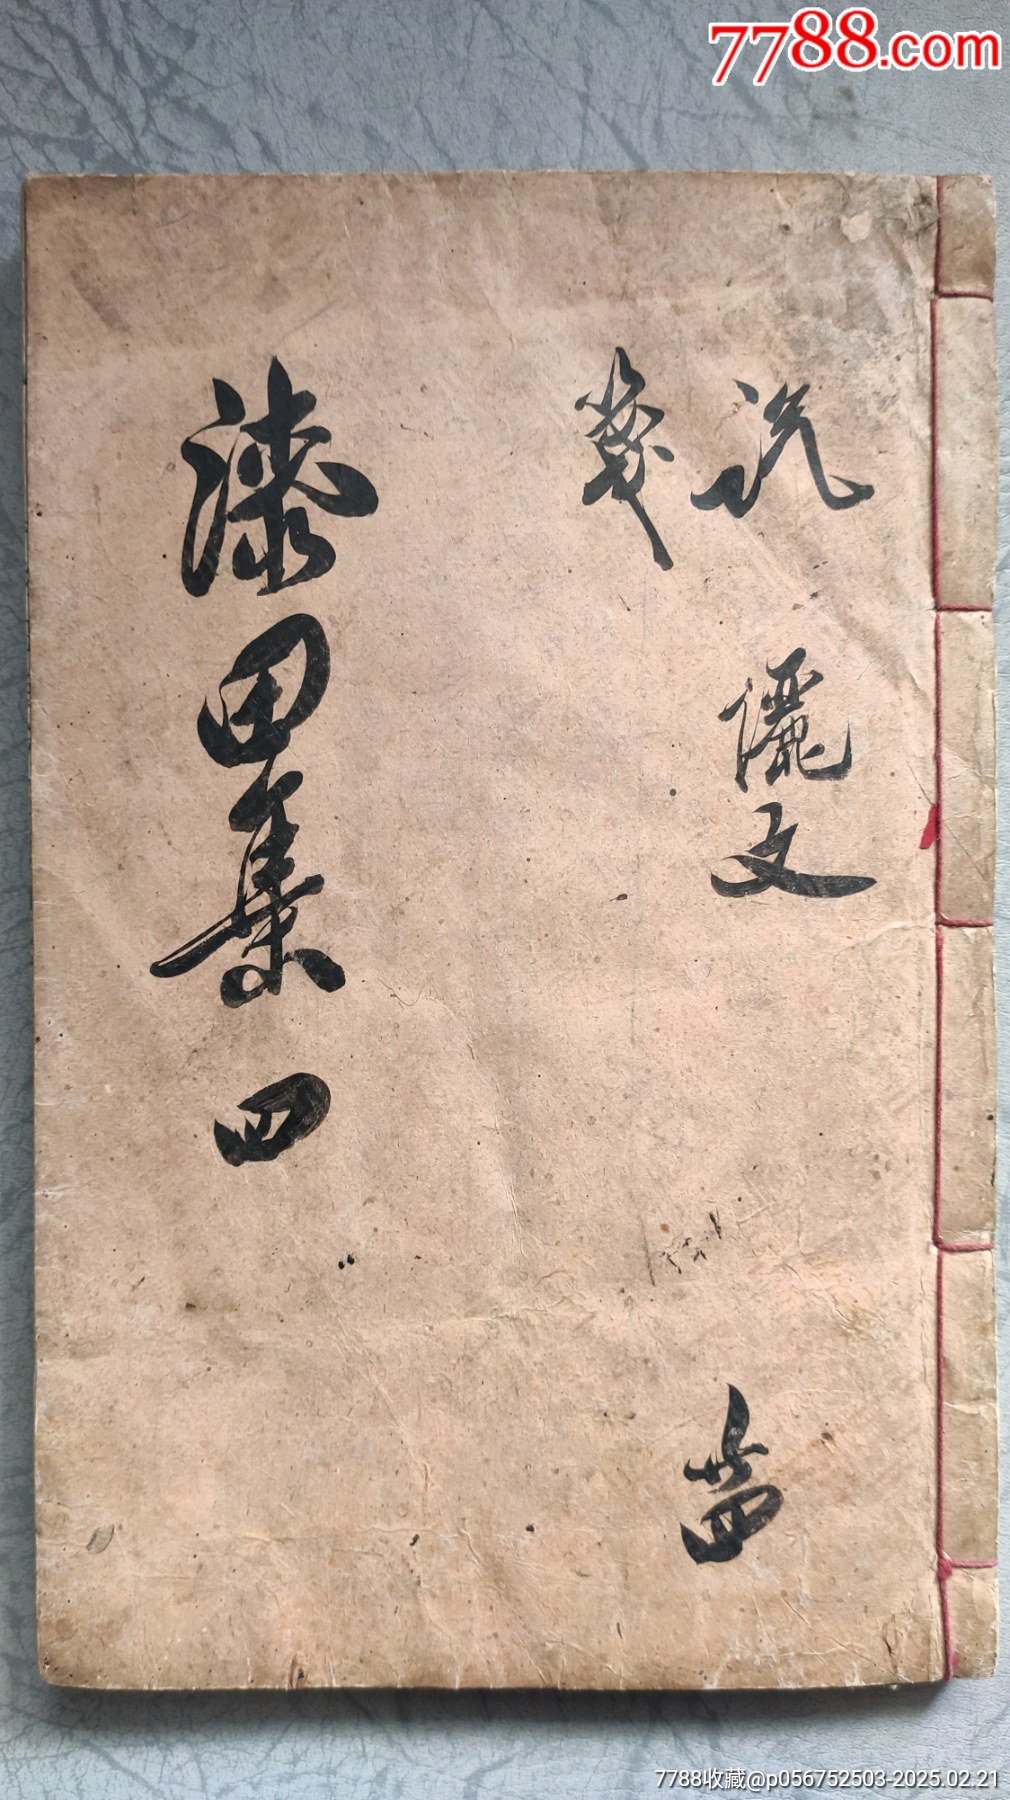 7788.com
說 儷文
共四
箋
漆田集 四
7788收藏@p056752503-2025.02.21